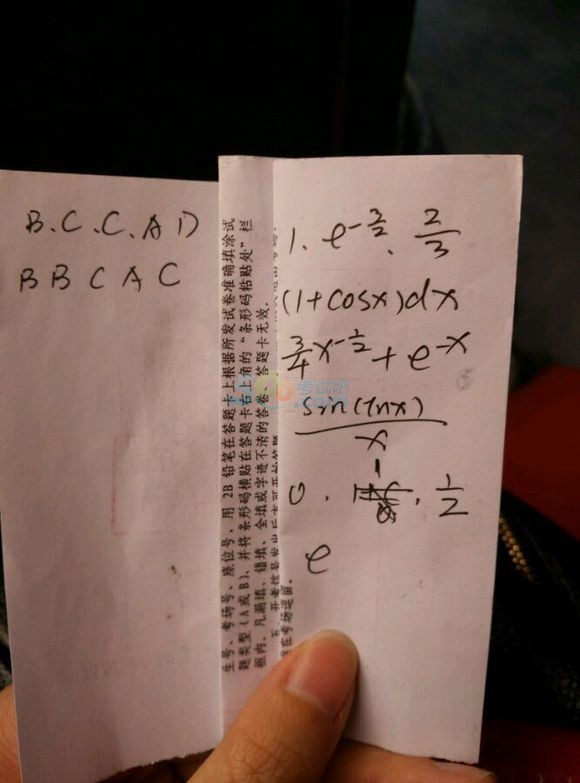 B.C.C.A D
B B C A C
1. e^{-3/2}. 2/3
(1+cosx)dx
3/4 x^{-1/2} + e^{-x}
sin(lnx)/x
0. 1. 1/2
e
生号、考场号、座位号，用 2B 铅笔在答题卡上根据所发试卷准确填涂试
题类型（A 或 B）、并将条形码横贴在答题卡右上角的“条形码粘贴处”栏
框内，凡漏填、错填、全填或字迹不清的答卷、答题卡无效．